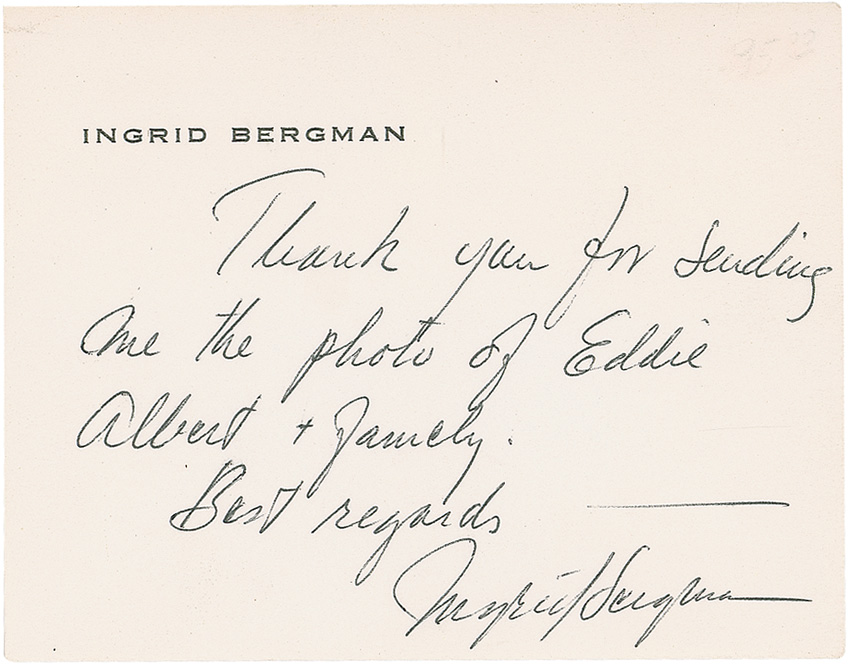 INGRID BERGMAN
Thank you for sending
me the photo of Eddie
Albert + family.
Best regards —
Ingrid Bergman